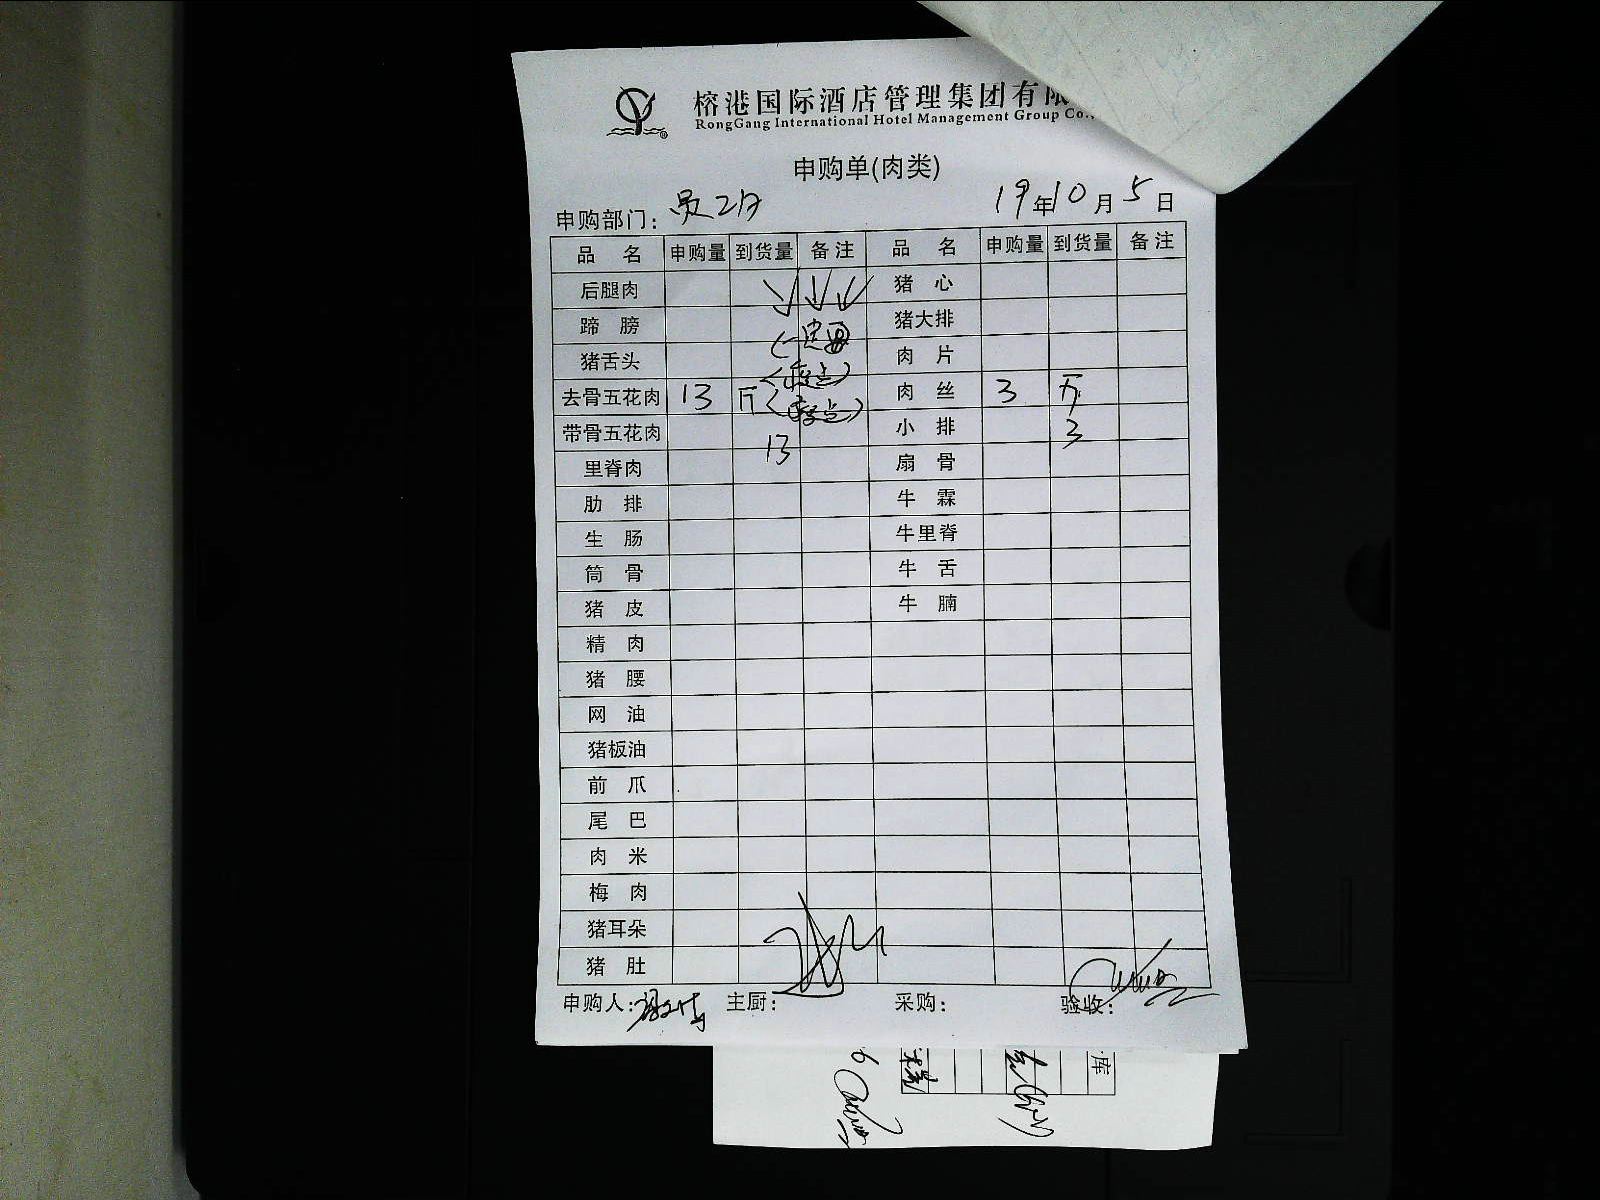 榕港国际酒店管理集团有限
RongGang International Hotel Management Group Co.,
申购单(肉类)
申购部门: 19年10月5日
品 名 申购量 到货量 备注 品 名 申购量 到货量 备注
后腿肉 猪 心
蹄 膀 猪大排
猪舌头 肉 片
去骨五花肉 13 斤 肉 丝 3 斤
带骨五花肉 13 小 排 3
里脊肉 扇 骨
肋 排 牛 霖
生 肠 牛里脊
筒 骨 牛 舌
猪 皮 牛 腩
精 肉
猪 腰
网 油
猪板油
前 爪
尾 巴
肉 米
梅 肉
猪耳朵
猪 肚
申购人: 主厨: 采购: 验收:
库